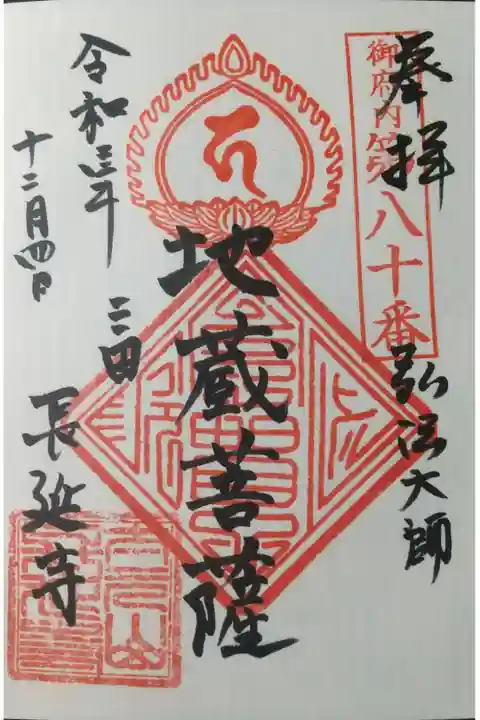 奉拝
弘法大師
御府内第八十番
地蔵菩薩
三田
長延寺
令和三年
十二月四日